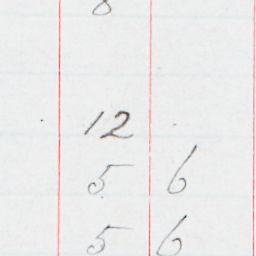 8
12
5 6
5 6